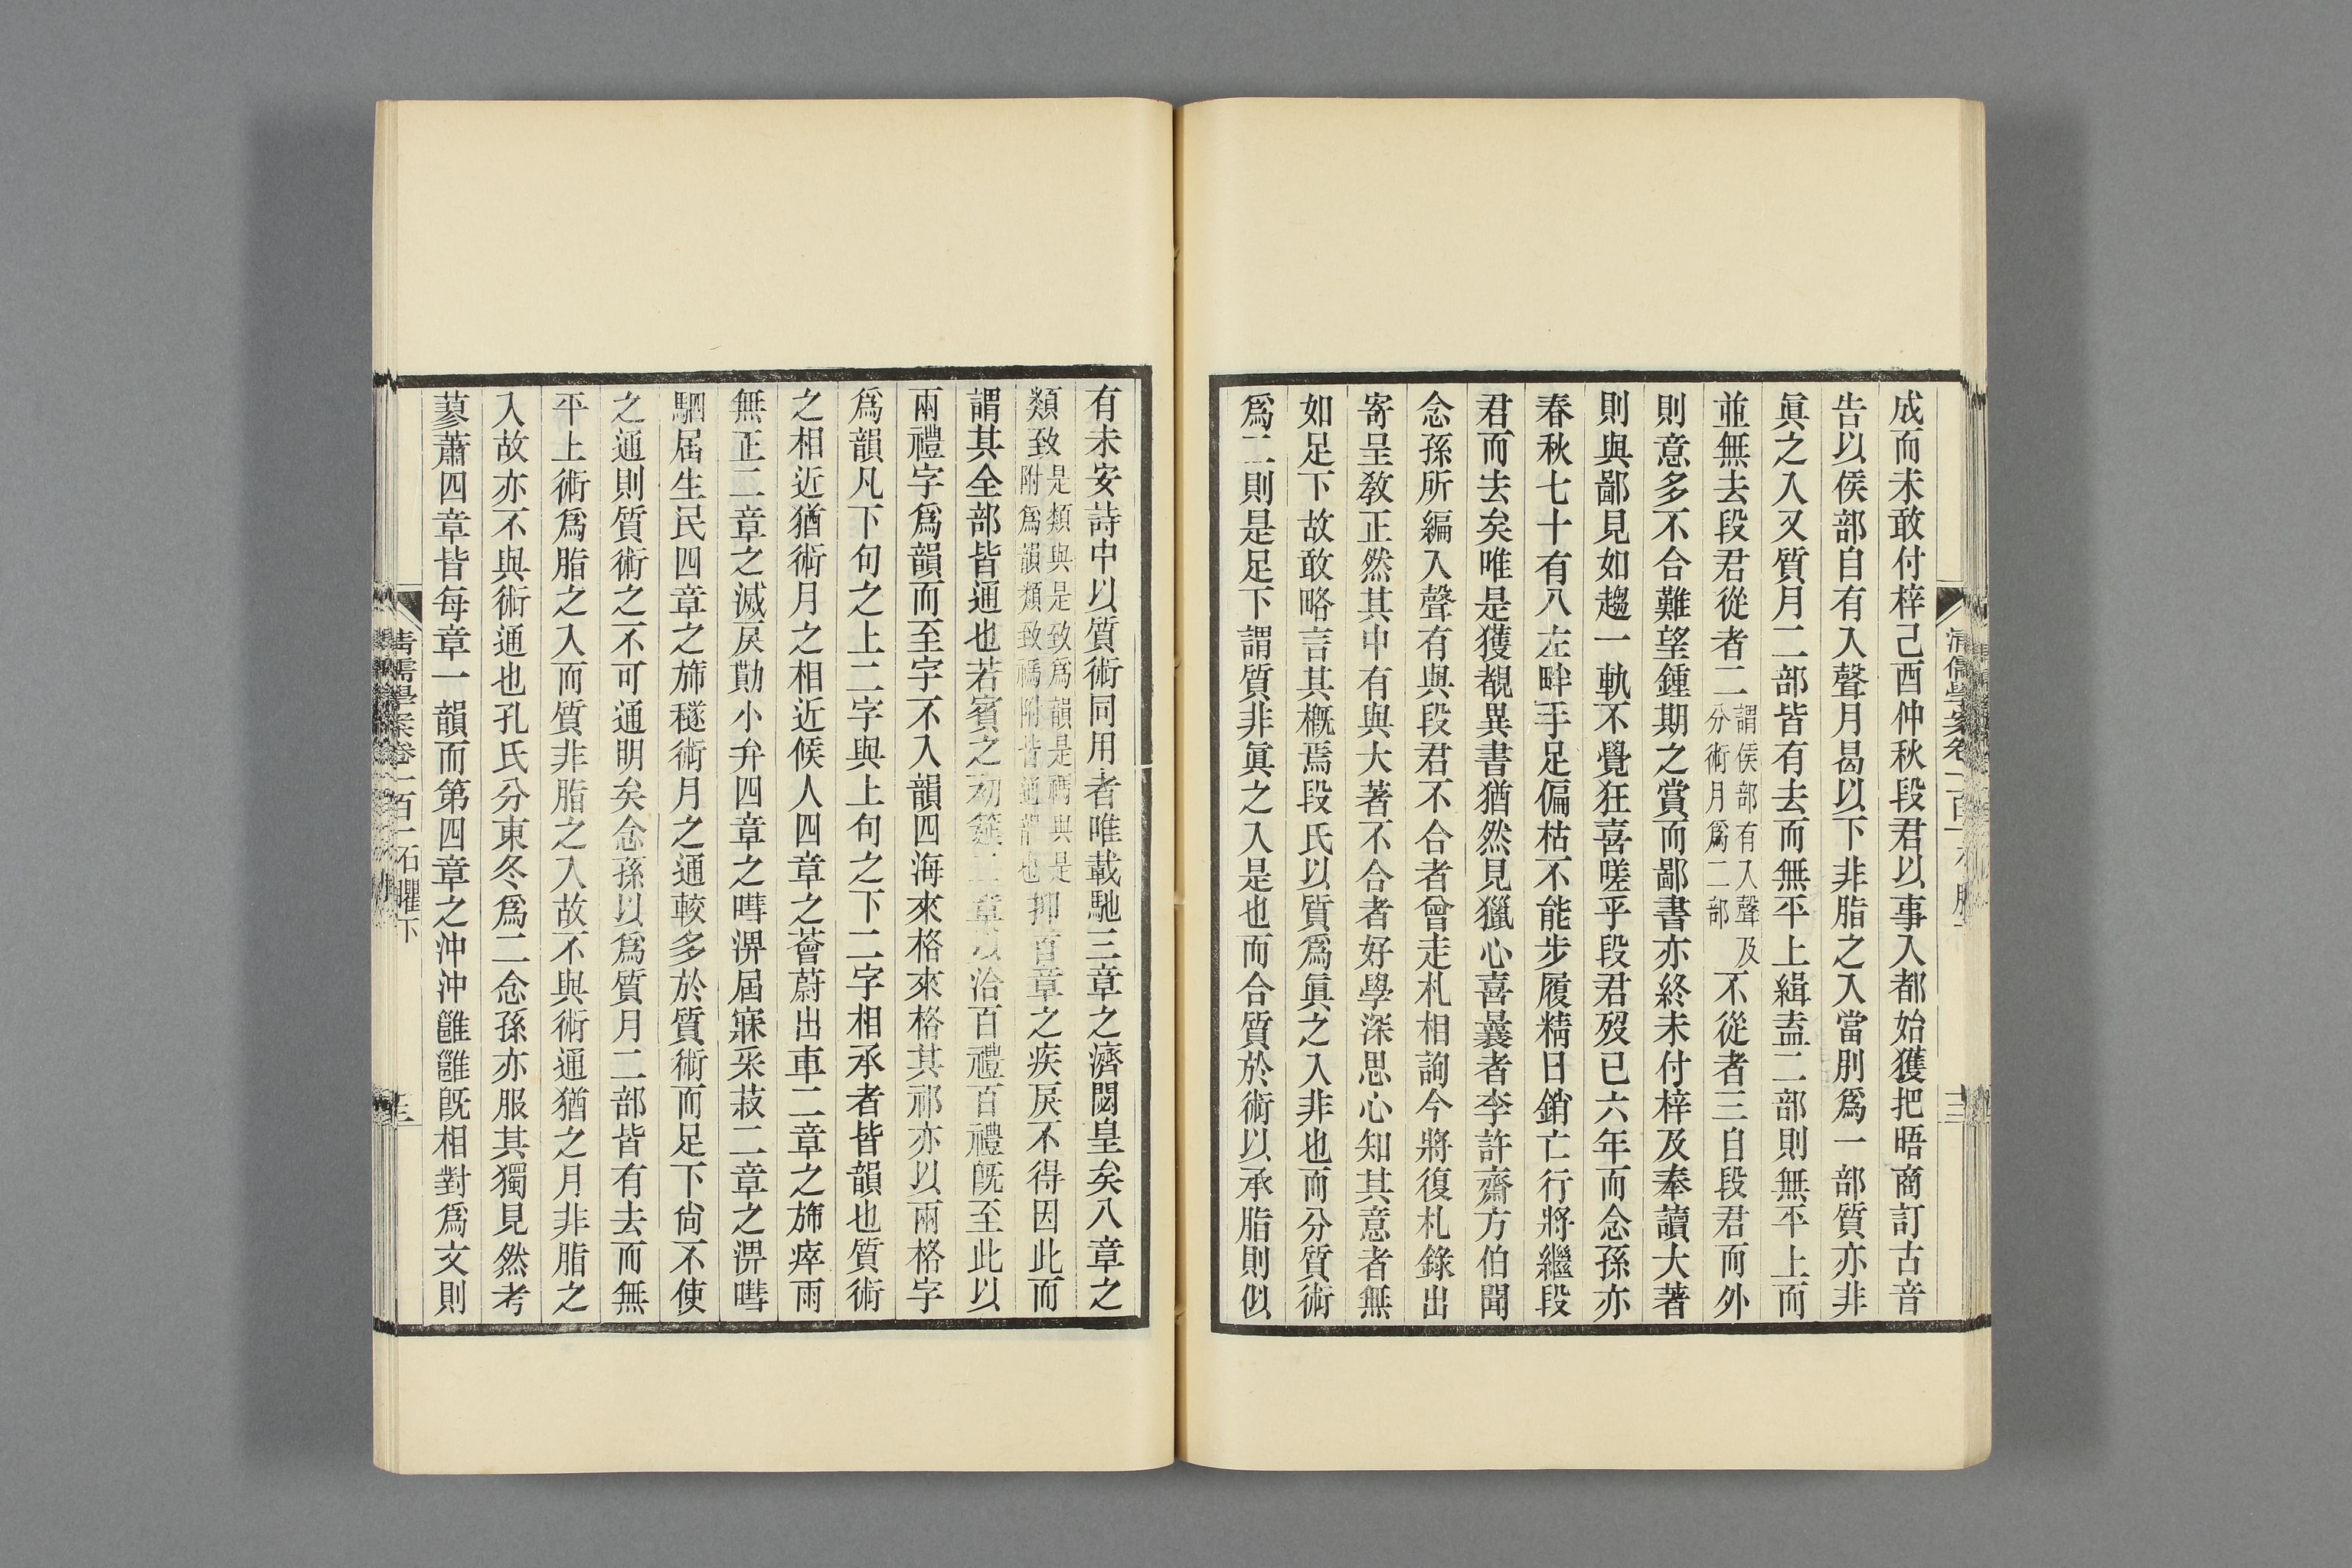 成而未敢付梓己酉仲秋段君以事入都始獲把晤商訂古音
告以侯部自有入聲月曷以下非脂之入當別爲一部質亦非
眞之入又質月二部皆有去而無平上緝盍二部則無平上而
並無去段君從者二謂侯部有入聲及分術月爲二部不從者三自段君而外
則意多不合難望鍾期之賞而鄙書亦終未付梓及奉讀大著
則與鄙見如趨一軌不覺狂喜嗟乎段君歿已六年而念孫亦
春秋七十有八左畔手足偏枯不能步履精日銷亡行將繼段
君而去矣唯是獲覩異書猶然見獵心喜曩者李許齋方伯聞
念孫所編入聲有與段君不合者曾走札相詢今將復札錄出
寄呈敎正然其中有與大著不合者好學深思心知其意者無
如足下故敢略言其概焉段氏以質爲眞之入非也而分質術
爲二則是足下謂質非眞之入是也而合質於術以承脂則似
有未安詩中以質術同用者唯載馳三章之濟閟皇矣八章之
類致是類與是致爲韻是禡與是附爲韻類致禡附皆通韻也抑首章之疾戾不得因此而
謂其全部皆通也若賓之初筵二章以洽百禮百禮旣至此以
兩禮字爲韻而至字不入韻四海來格來格其祁亦以兩格字
爲韻凡下句之上二字與上句之下二字相承者皆韻也質術
之相近猶術月之相近候人四章之薈蔚出車二章之旆瘁雨
無正二章之滅戾勩小弁四章之嘒淠屆寐采菽二章之淠嘒
駟屆生民四章之旆穟術月之通較多於質術而足下尙不使
之通則質術之不可通明矣念孫以爲質月二部皆有去而無
平上術爲脂之入而質非脂之入故不與術通猶之月非脂之
入故亦不與術通也孔氏分東冬爲二念孫亦服其獨見然考
蓼蕭四章皆每章一韻而第四章之沖沖雝雝旣相對爲文則